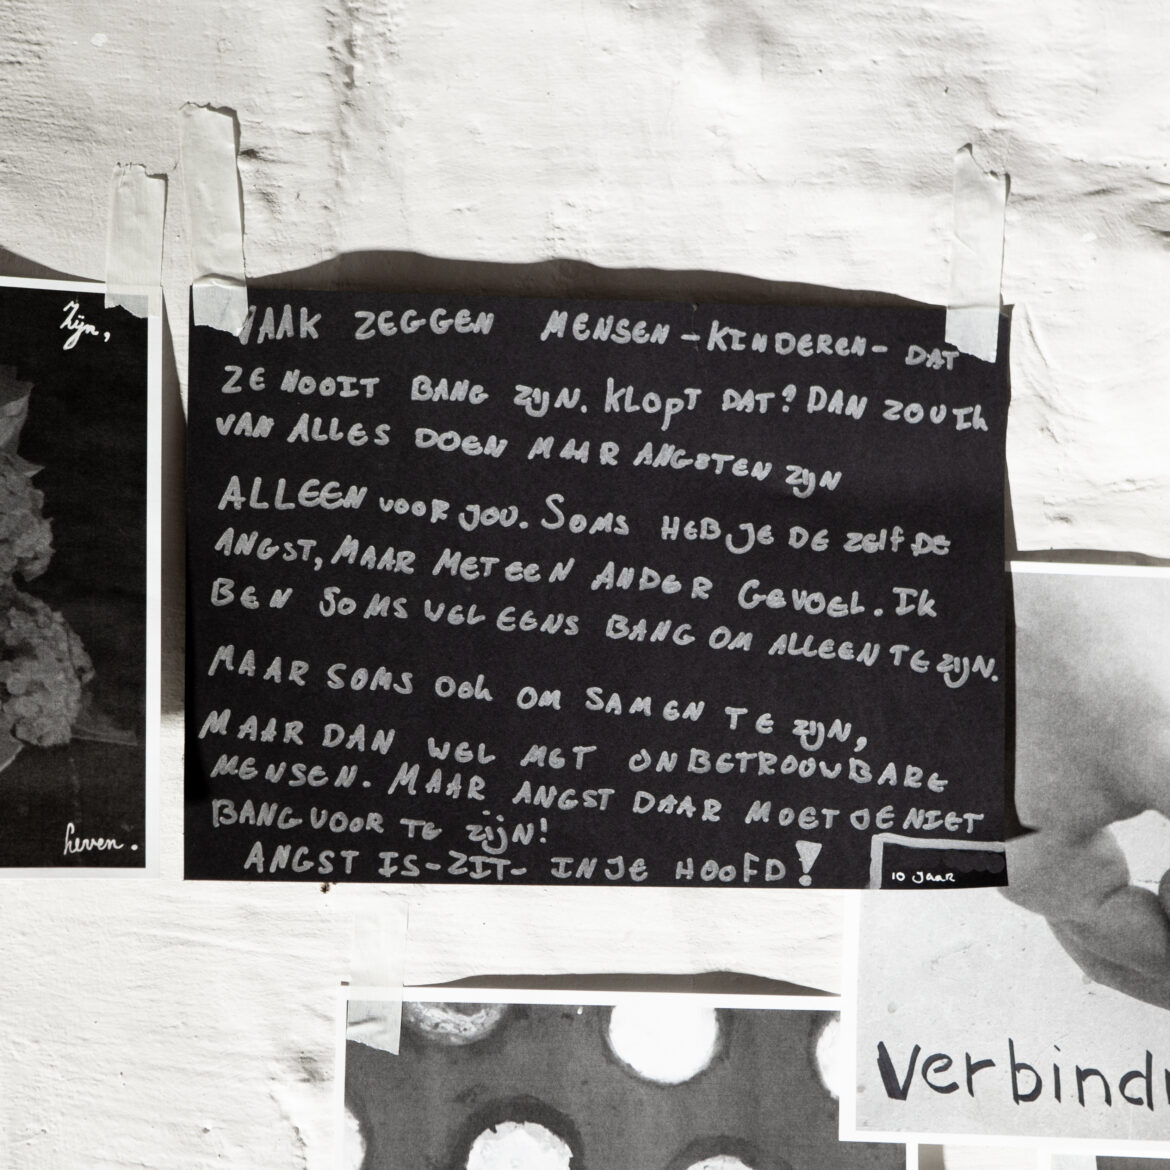 Zijn,
leven.
VAAK ZEGGEN MENSEN -KINDEREN- DAT
ZE NOOIT BANG ZIJN. KLOPT DAT? DAN ZOU IK
VAN ALLES DOEN MAAR ANGSTEN ZIJN
ALLEEN VOOR JOU. SOMS HEB JE DE ZELFDE
ANGST, MAAR MET EEN ANDER GEVOEL. IK
BEN SOMS WEL EENS BANG OM ALLEEN TE ZIJN.
MAAR SOMS OOK OM SAMEN TE ZIJN,
MAAR DAN WEL MET ONBETROUWBARE
MENSEN. MAAR ANGST DAAR MOET JE NIET
BANG VOOR TE ZIJN!
ANGST IS-ZIT- IN JE HOOFD!
10 JAAR
verbind